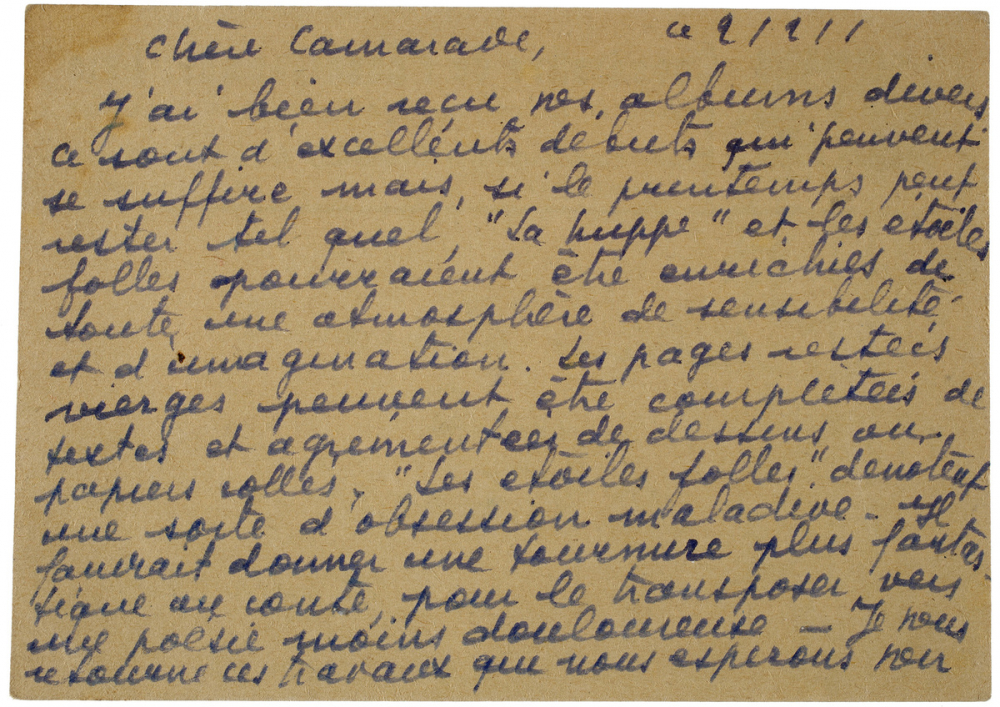 Chère Camarade, ce 2/2/1
J'ai bien reçu vos albums divers
ce sont d'excellents débuts qui peuvent
se suffire mais, si le printemps peut
rester tel quel, "La huppe" et les étoiles
folles pourraient être enrichies de
toute une atmosphère de sensibilité
et d'imagination. Les pages restées
vierges peuvent être complétées de
textes et agrémentées de dessins ou
papiers collés. "Les étoiles folles" dénotent
une sorte d'obsession maladive - Il
faudrait donner une tournure plus fantas-
tique au conte, pour le transposer vers
une poésie moins douloureuse - Je vous
retourne ces travaux que nous espérons voir